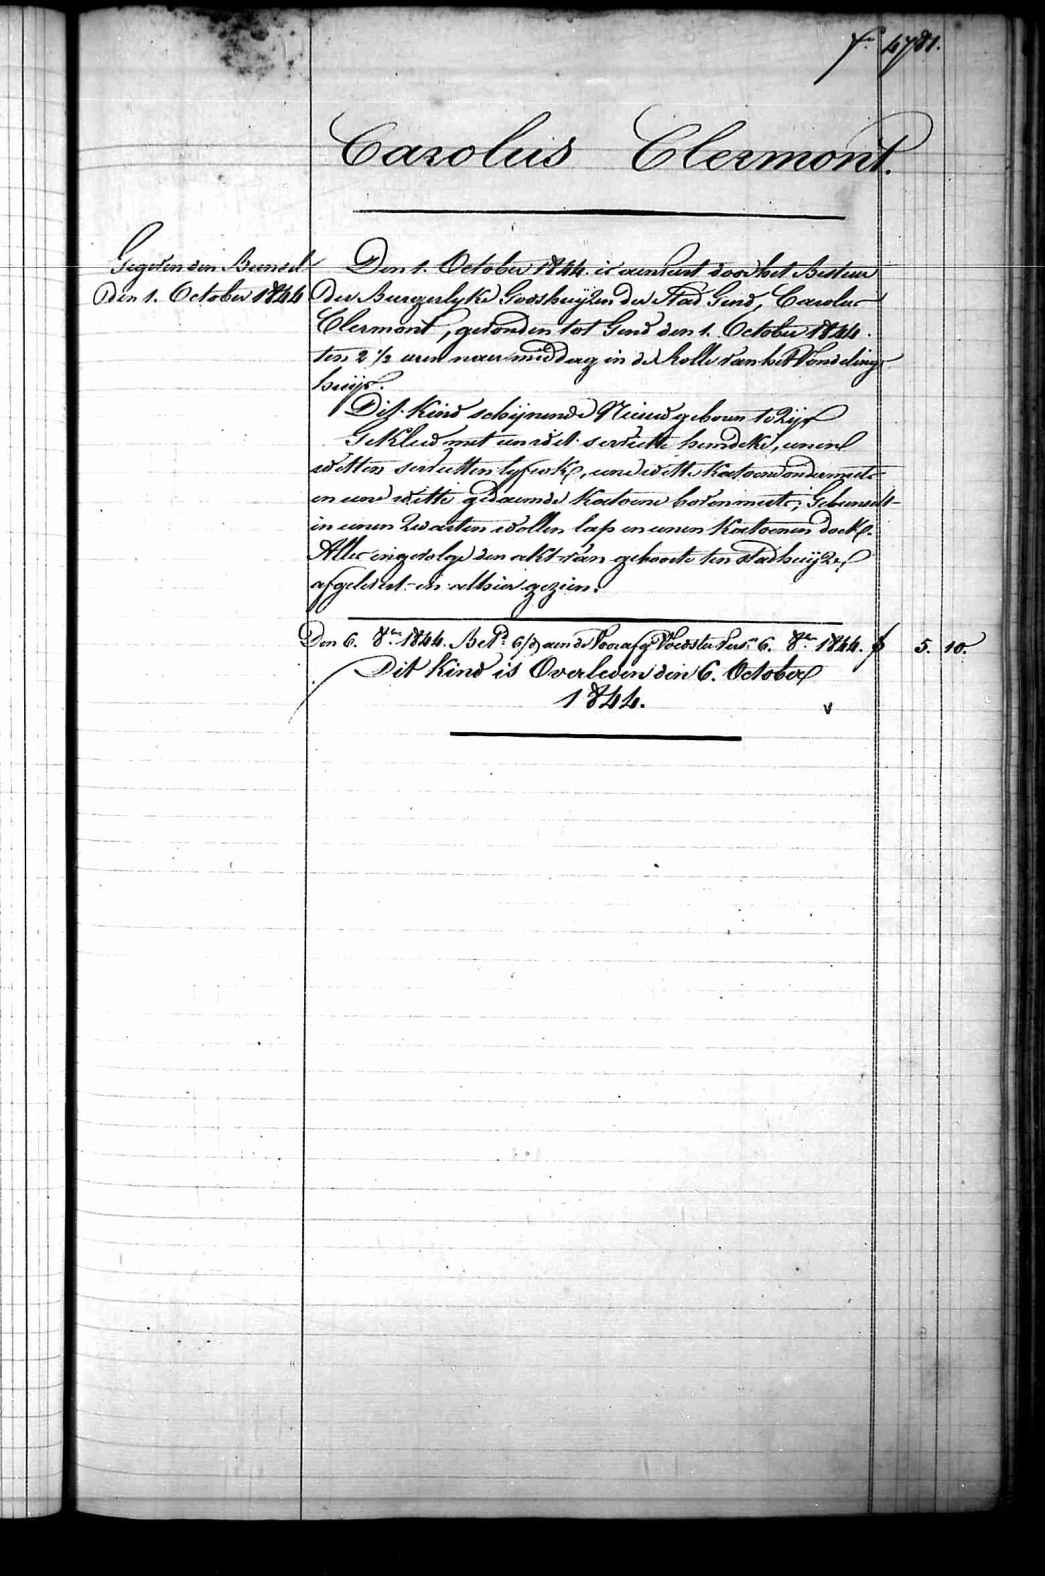 f. 4781.
Carolus Clermont.
Gegeven den Bunsel
Den 1. October 1844
Den 1. October 1844. is aenveert door het Bestuer
der Burgerlyke Godshuyzen der Stad Gend, Carolus
Clermont, gevonden tot Gend den 1. October 1844.
ten 2 1/2 uren naer middag in de Rolle van het Vondeling
huijs.
Dit Kind schijnende Nieuw geboren te zijn
Gekleed met een wit serviette hemdeke, eenen
witten servietten lyfrok, eene witte Katoene ondermuts
en eene witte gebloemde Katoene bovenmuts; Gebunselt
in eenen Zwarten wollen lap en eenen Katoenen doek.
Alles ingevolge den akt van geboorte ten stadhuijze
afgelevert en alhier gezien.
Den 6. 8er 1844. Betd 6/d aen de Voorafge Voedster 6. 8er 1844. f 5. 10.
Dit Kind is Overleden den 6. October
1844.